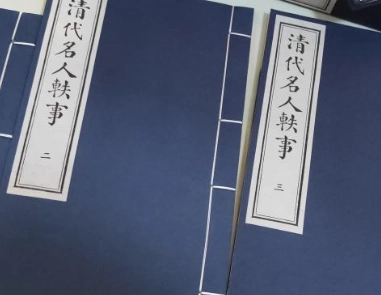 清代名人軼事
二
清代名人軼事
三